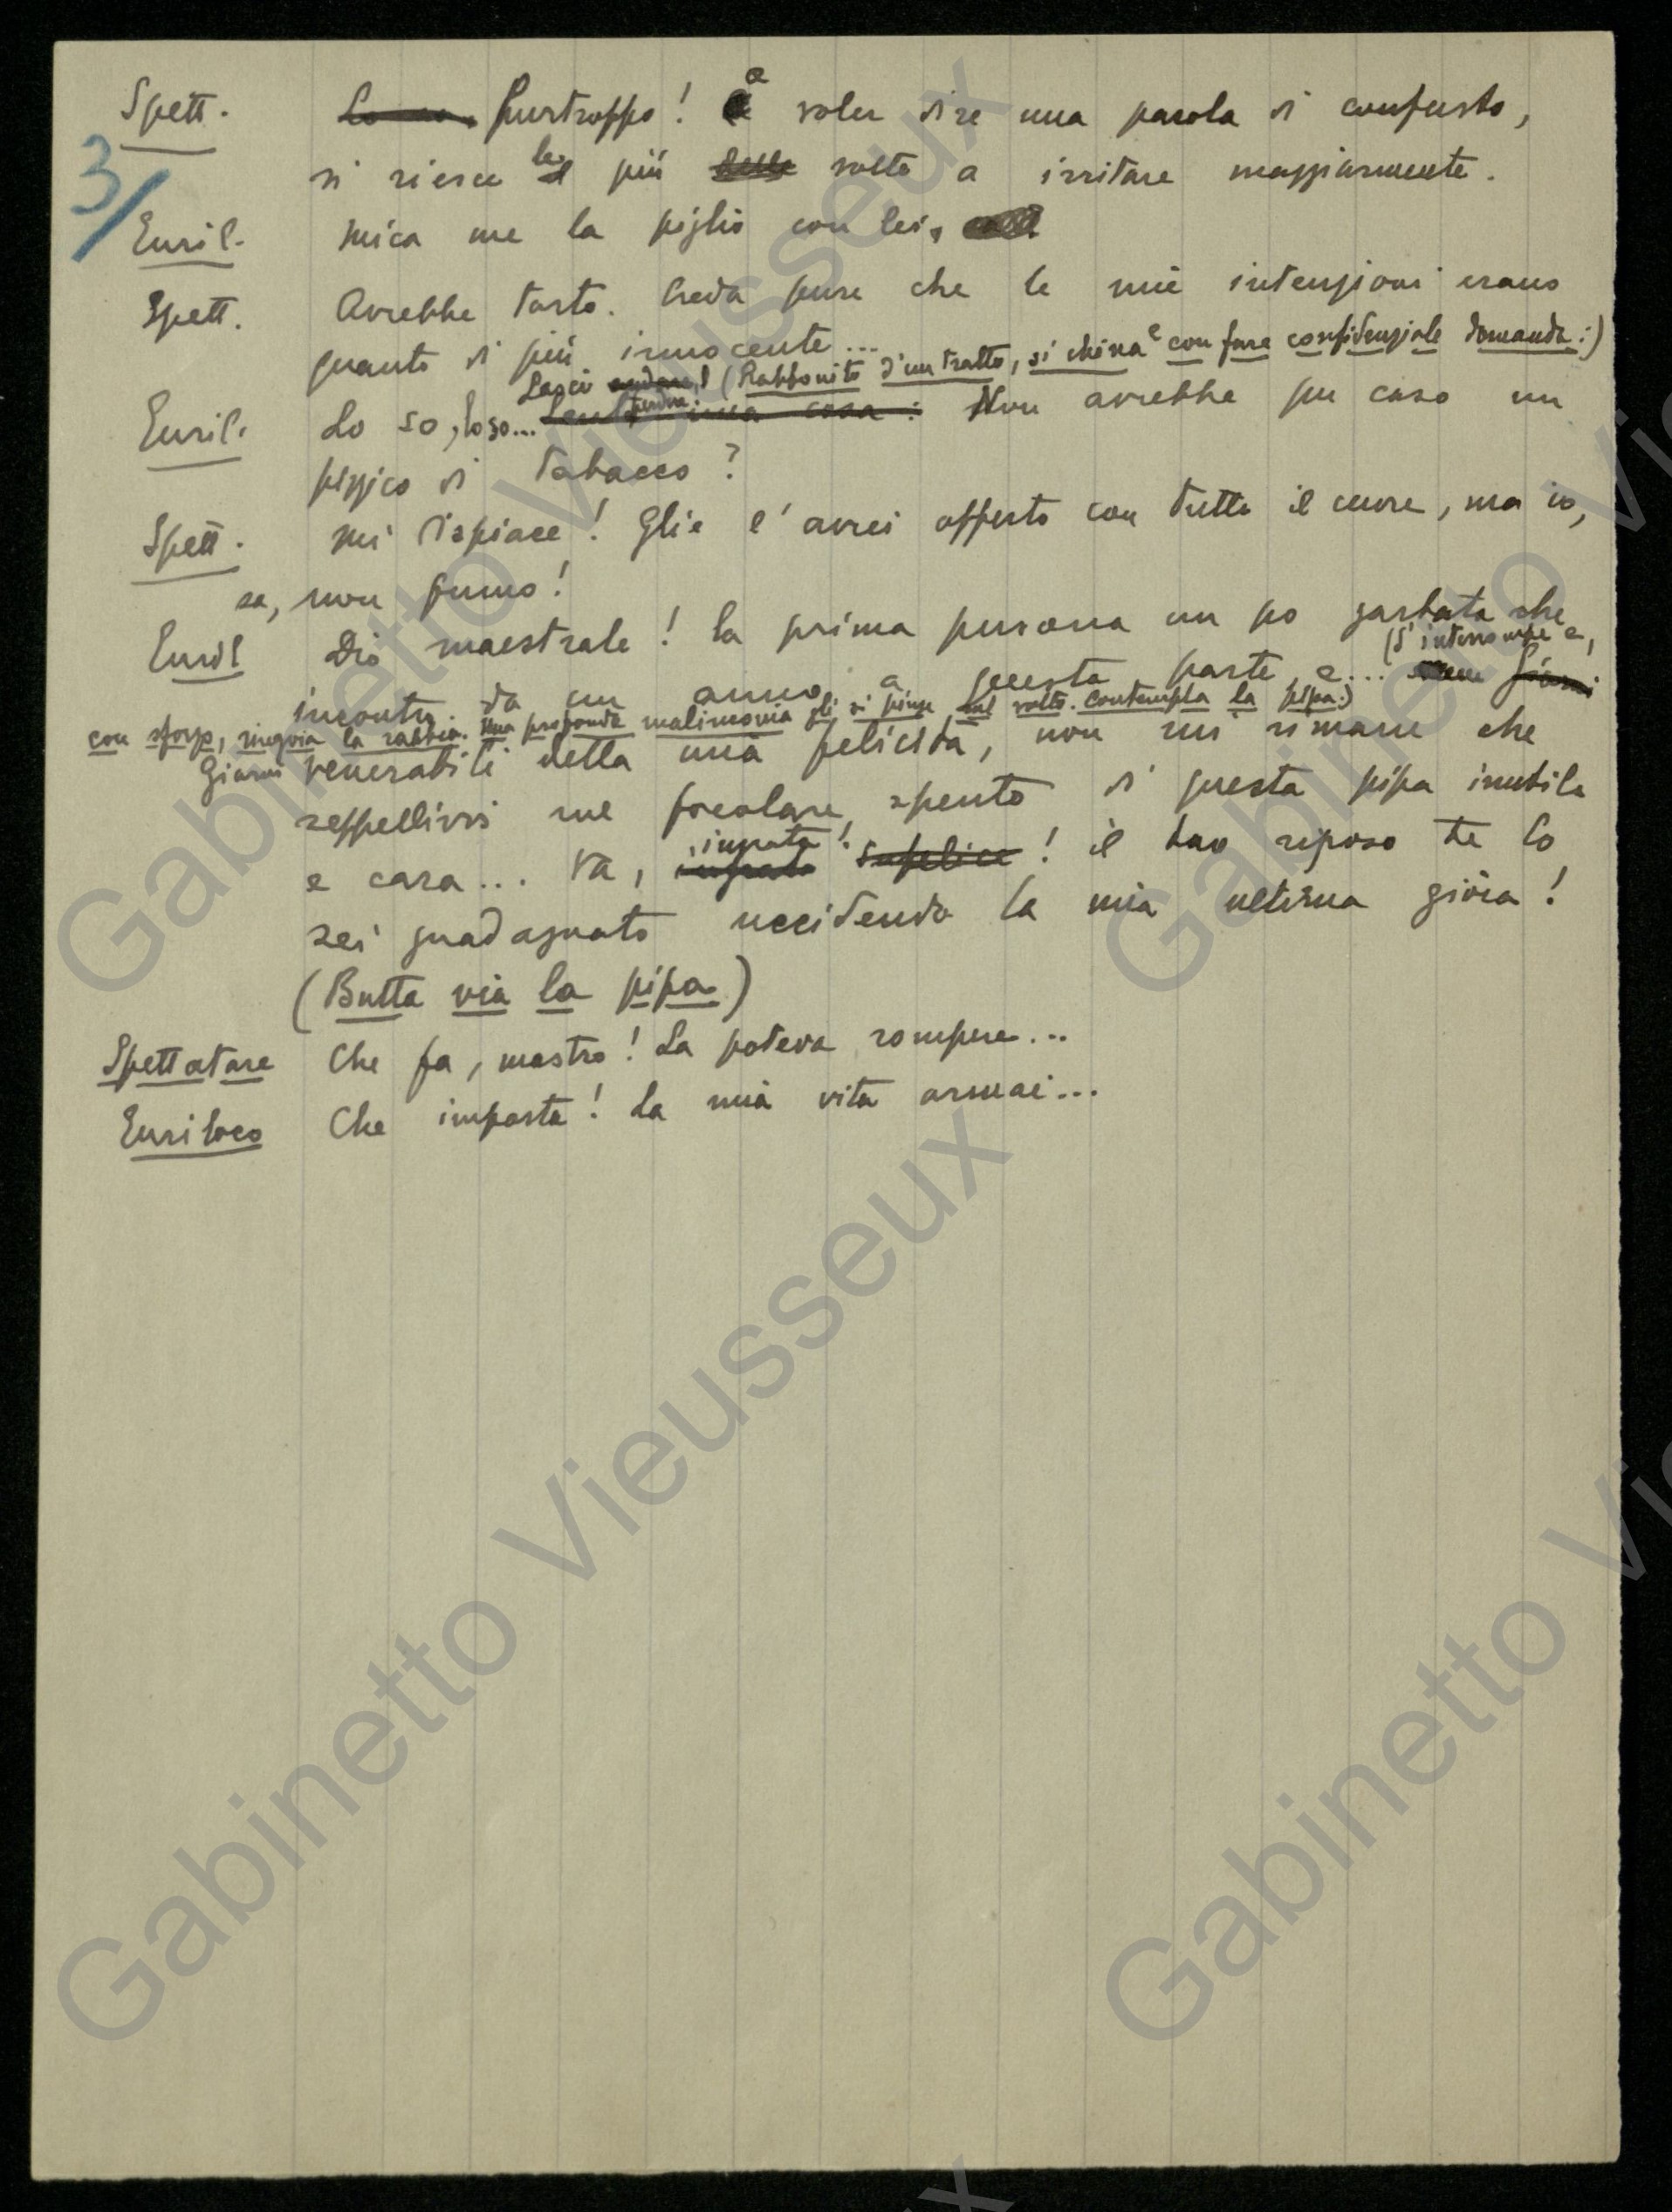 3/
Spett. Lo so, Purtroppo! a voler dire una parola di conforto,
si riesce le più delle volte a irritare maggiormente.
Euril. Mica me la piglio con lei.
Spett. Avrebbe torto. Creda pure che le mie intenzioni erano
quanto di più innocente...
Lasci andare! perdere. (Rabbonito d'un tratto, si china e con fare confidenziale domanda:)
Euril. Lo so, lo so... Senta una cosa: Non avrebbe per caso un
pizzico di tabacco?
Spett. Mi dispiace! Glie l'avrei offerto con tutto il cuore, ma io,
sa, non fumo!
Euril Dio maestrale! La prima persona un po garbata che
(S'interrompe e,
incontro da un anno a questa parte, e... Giorni
con sforzo, ringoia la rabbia. Una profonda malinconia gli si pinge sul volto. Contempla la pipa:)
Giorni venerabili della mia felicità, non mi rimane che
seppellirvi nel focolare spento di questa pipa inutile
e cara... Va, ingrata infelice! ingrata! il tuo riposo te lo
sei guadagnato uccidendo la mia ultima gioia!
(Butta via la pipa)
Spettatore Che fa, mastro! La poteva rompere...
Euriloco Che importa! La mia vita ormai...
Gabinetto Vieusseux
Gabinetto Vieusseux
Gabinetto Vieusseux
Gabinetto Vieusseux